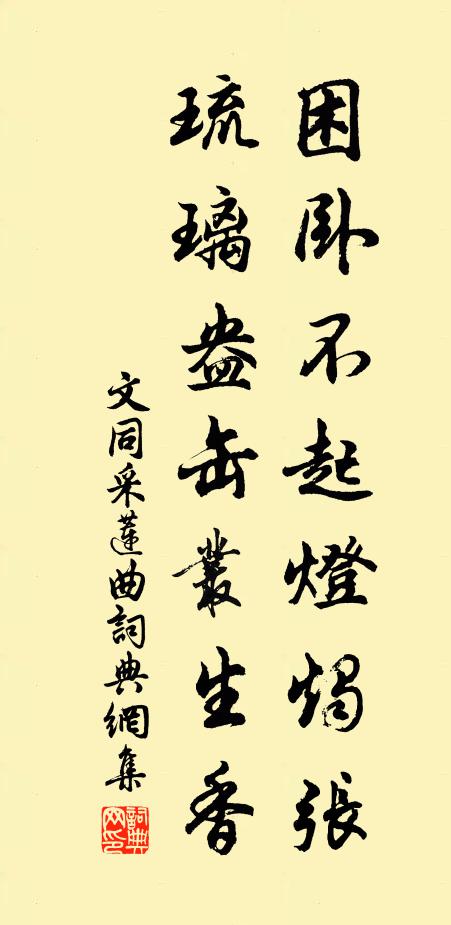 困卧不起燈燭張
琉璃盎缶叢生香
文同采蓮曲詞典網集
詞典網印